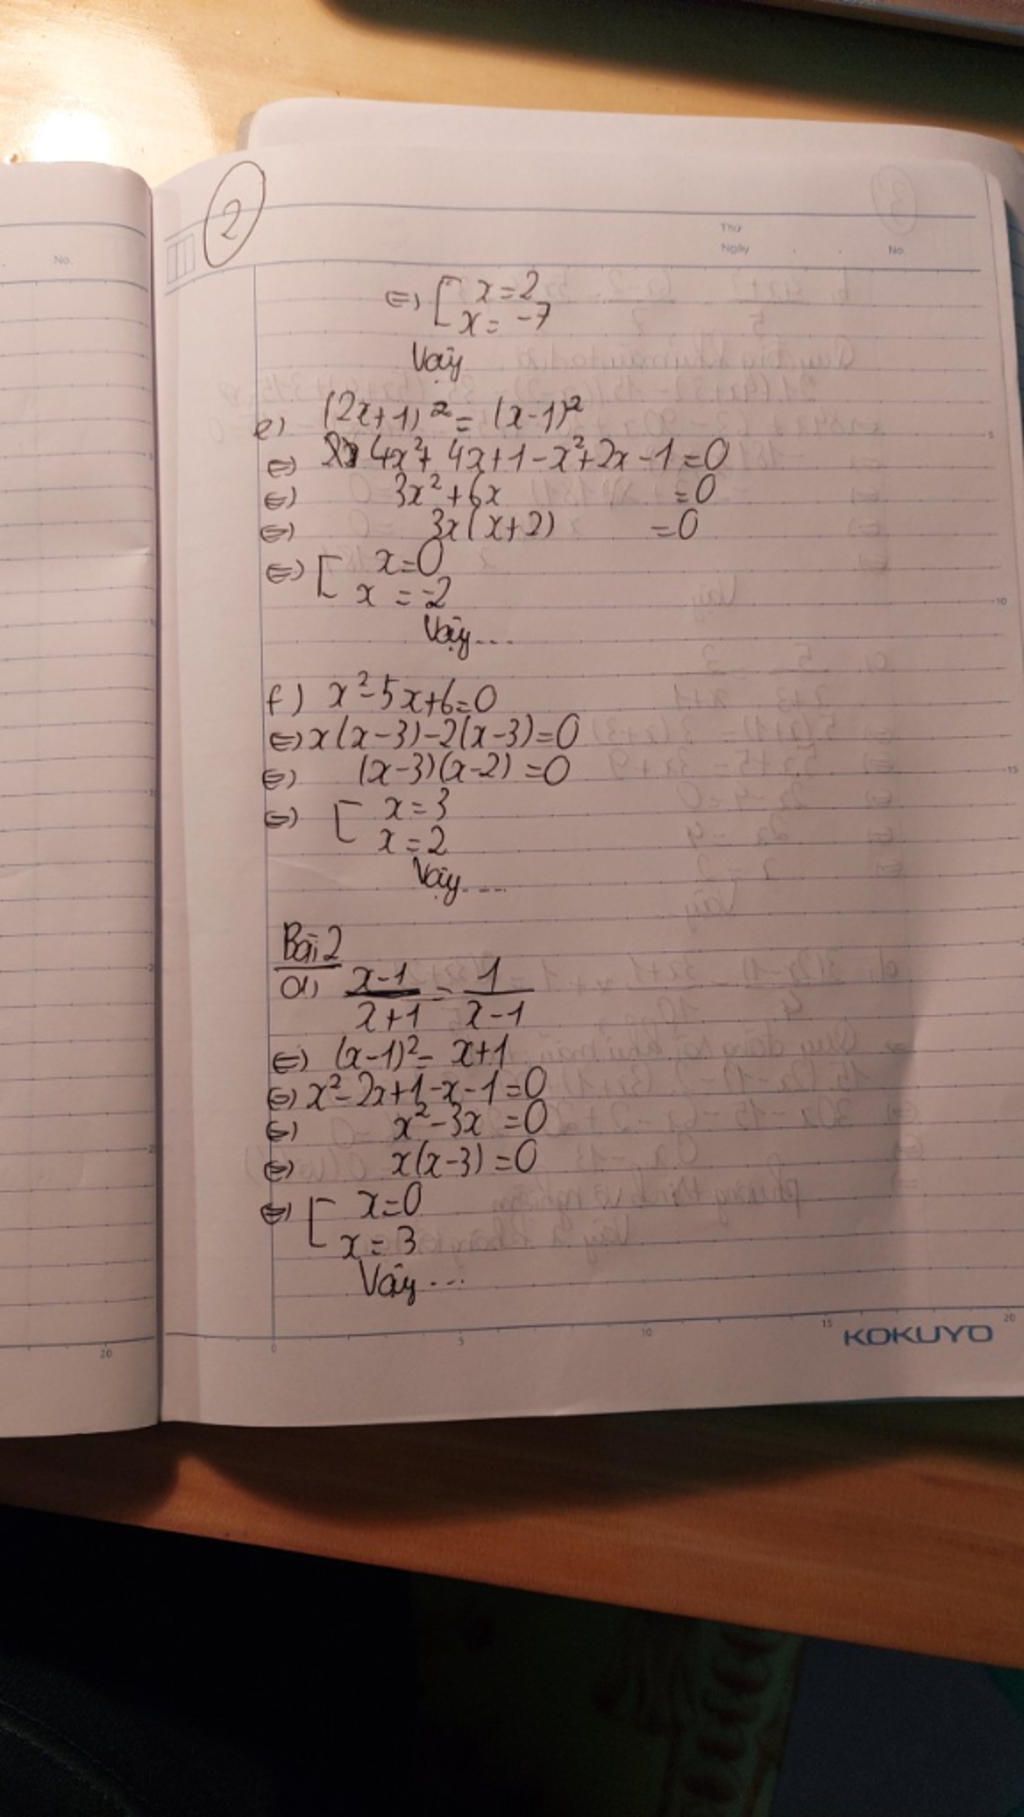 2
Thứ
Ngày . . No.
No.
⇔ [ x=2
x= -7
Vậy
e) (2x+1)² = (x-1)²
⇔ 4x²+ 4x+1-x²+2x-1=0
⇔ 3x²+6x =0
⇔ 3x(x+2) =0
⇔ [ x=0
x = -2
Vậy...
f) x²-5x+6=0
⇔ x(x-3)-2(x-3)=0
⇔ (x-3)(x-2)=0
⇔ [ x=3
x=2
Vậy....
Bài 2
a) x-1/x+1 = 1/x-1
⇔ (x-1)²= x+1
⇔ x²-2x+1-x-1=0
⇔ x²-3x =0
⇔ x(x-3)=0
⇔ [ x=0
x=3
Vậy...
0 5 10 15 20
KOKUYO
20